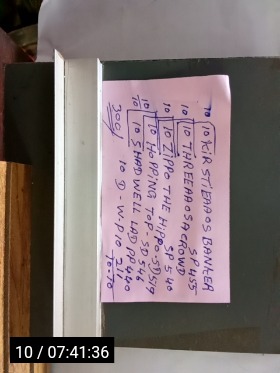 10 10 KIRSTIEBAOS BANKER
SP455
10 10 THREEBAOSACROWD
SP540
10 10 ZIPPO THE HIPPO-SD519
10 10 HOPPING TOP-SD546
10 10 SHADWELL LAD PP440
70
300/ 10 D-W-P10 211
10/07:41:36